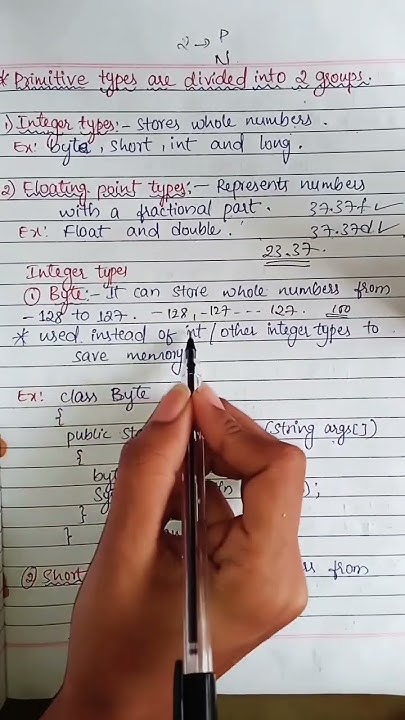 2 → P
N
* Primitive types are divided into 2 groups.
1) Integer types:- stores whole numbers.
Ex: byte, short, int and long.
2) Floating point types:- Represents numbers
with a fractional part. 37.37f ✓
Ex: Float and double. 37.37d ✓
23.37.
Integer types
① Byte:- It can store whole numbers from
-128 to 127. -128, -127 --- 127. 100
* used instead of int / other integer types to
save memory
Ex: class Byte
{
public (String args[])
{
);
}
}
② Short from